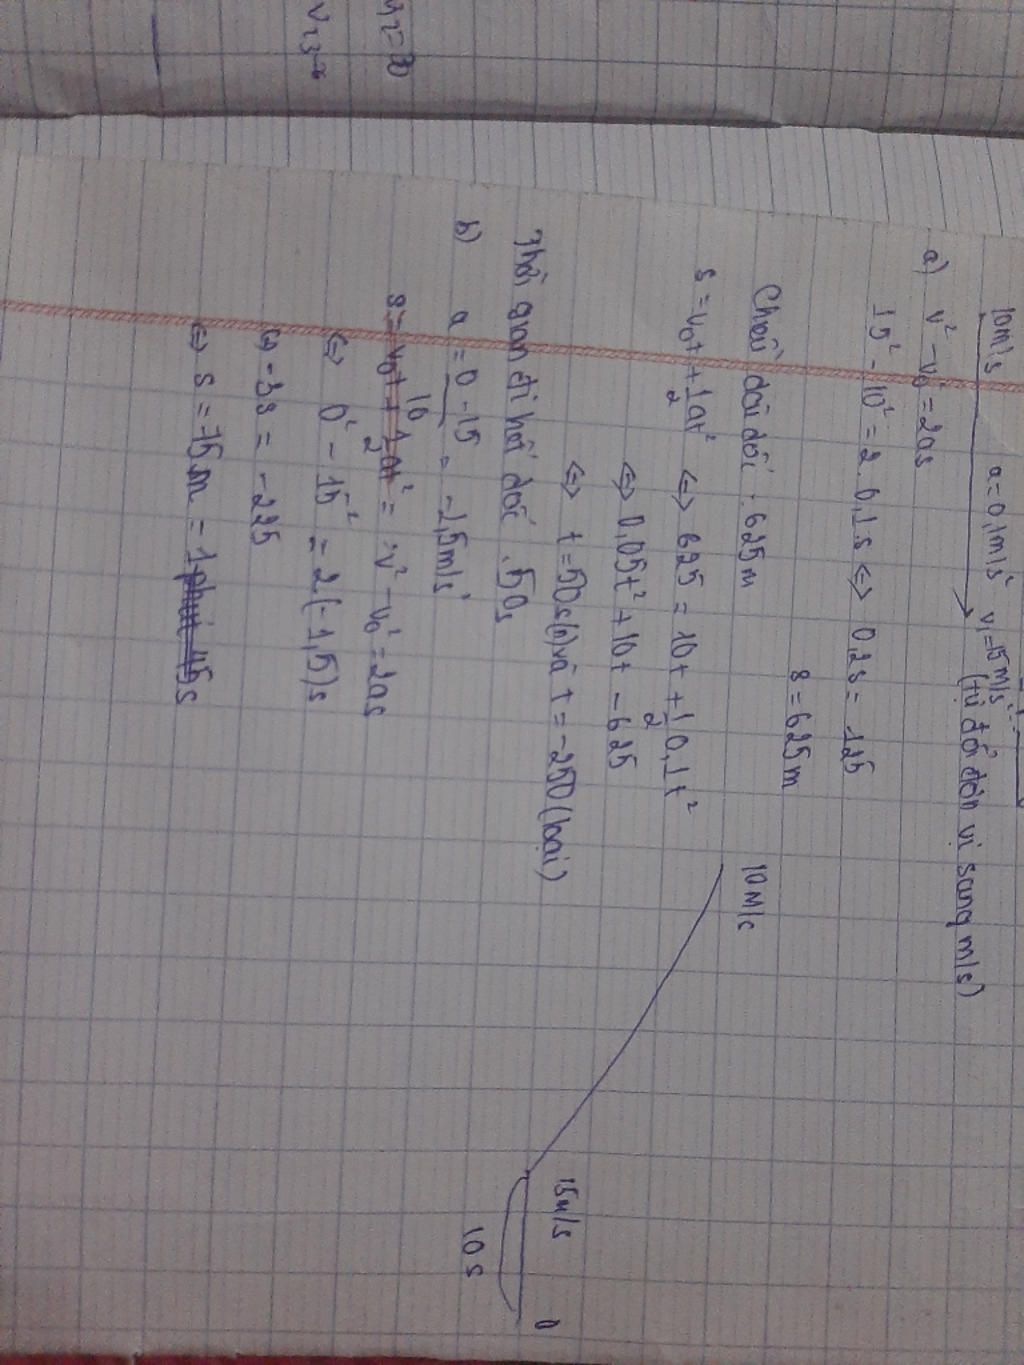 10m/s a = 0,1m/s² v₁=15m/s
(tự đổi đơn vị sang m/s)
a) v² - v₀² = 2as
15² - 10² = 2 . 0,1s <=> 0,2s = 125
s = 625m
Chiều dài dốc : 625m
10m/s
s = v₀t + 1/2 at² <=> 625 = 10t + 1/2 0,1t²
<=> 0,05t² + 10t - 625
<=> t = 50s(n) và t = -250 (loại)
Thời gian đi hết dốc : 50s
15m/s
0
10s
b) a = 0 - 15 / 10 = -1,5m/s²
s = v₀t + 1/2 at² = v² - v₀² = 2as
<=> 0² - 15² = 2(-1,5)s
<=> -3s = -225
<=> s = 75m =